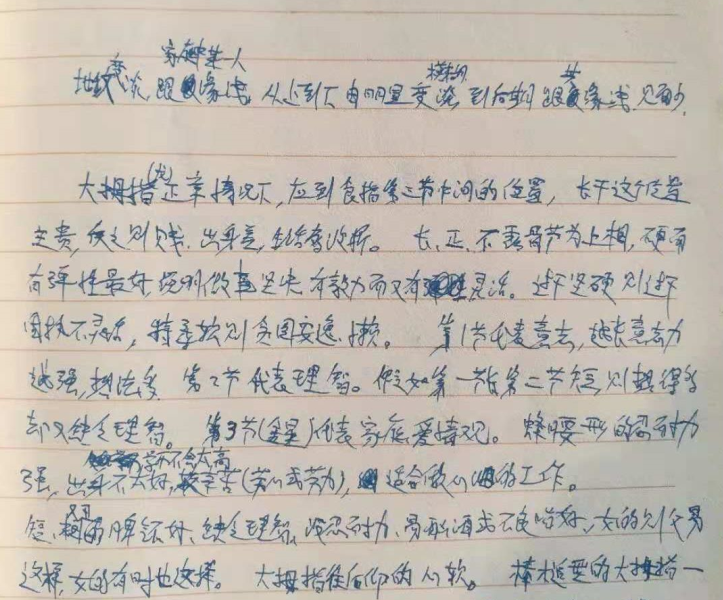 家种某一人
地纹变淡,跟缘浅。从上到下由明显变淡,模糊到后期跟其缘浅,见面少,
大拇指(九)正章情况下,应到食指第三节中间的位置,长于这个位置
主贵,矦之则贱,出身差,生活有波折。长、正、不露骨节为上相,硬而
有弹性最好,说明做事坚决有毅力而又有灵活。过于坚硬则过于
固执不灵活,特柔软则贪图安逸、懒。第1节代表意志,越长意志力
越强,想法多,第2节代表理智。假如第一节长第二节短,则想得多
却又缺乏理智。第3节(金星)代表家庭爱情观。蜂腰形的忍耐力
学术不会太高
强,出身不太好,较辛苦(劳心或劳力),适合做心的工作。
短、粗的脾气不好、缺乏理智,没忍耐力、易酗酒或不良嗜好,女的则
这样,女的有时也这样。大拇指往后仰的心软。棒槌型的大拇指一